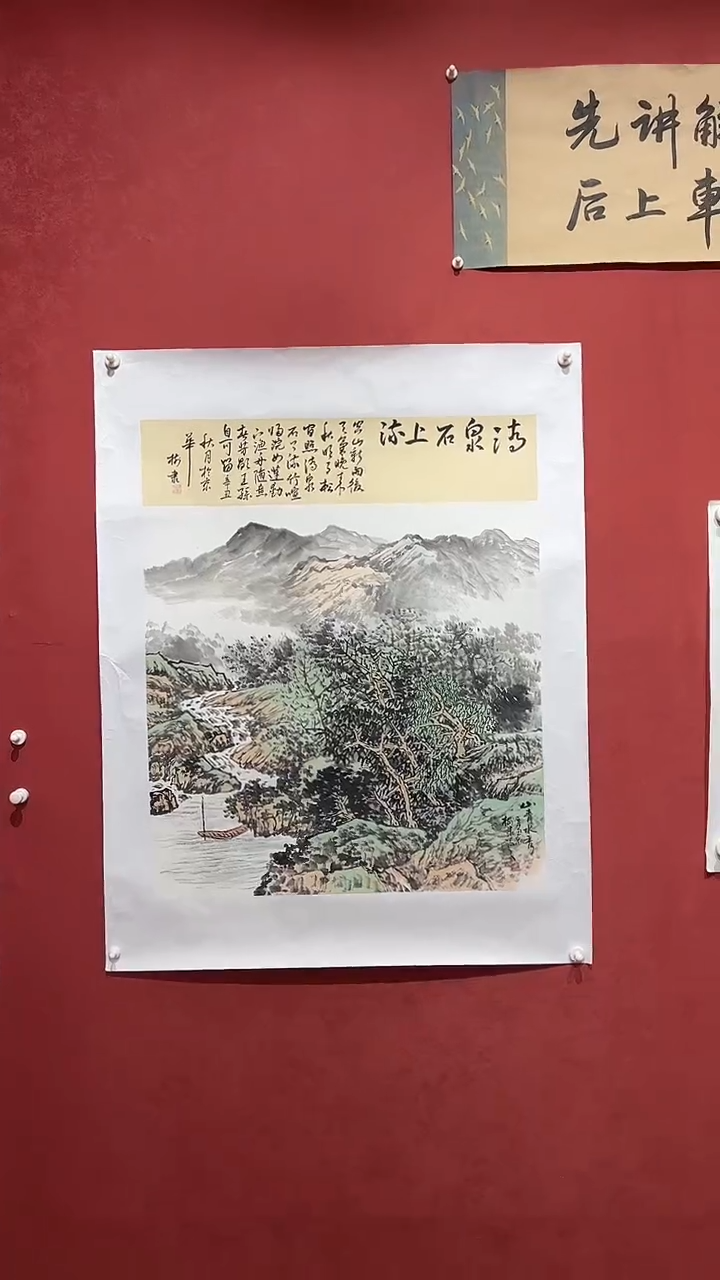 先讲解
后上車
清泉石上流
空山新雨後
天氣晚来
秋明月松
间照清泉
石上流竹喧
归浣女莲动
下渔舟随意
春芳歇王孫
自可留辛丑
秋月於京
華
山青水秀